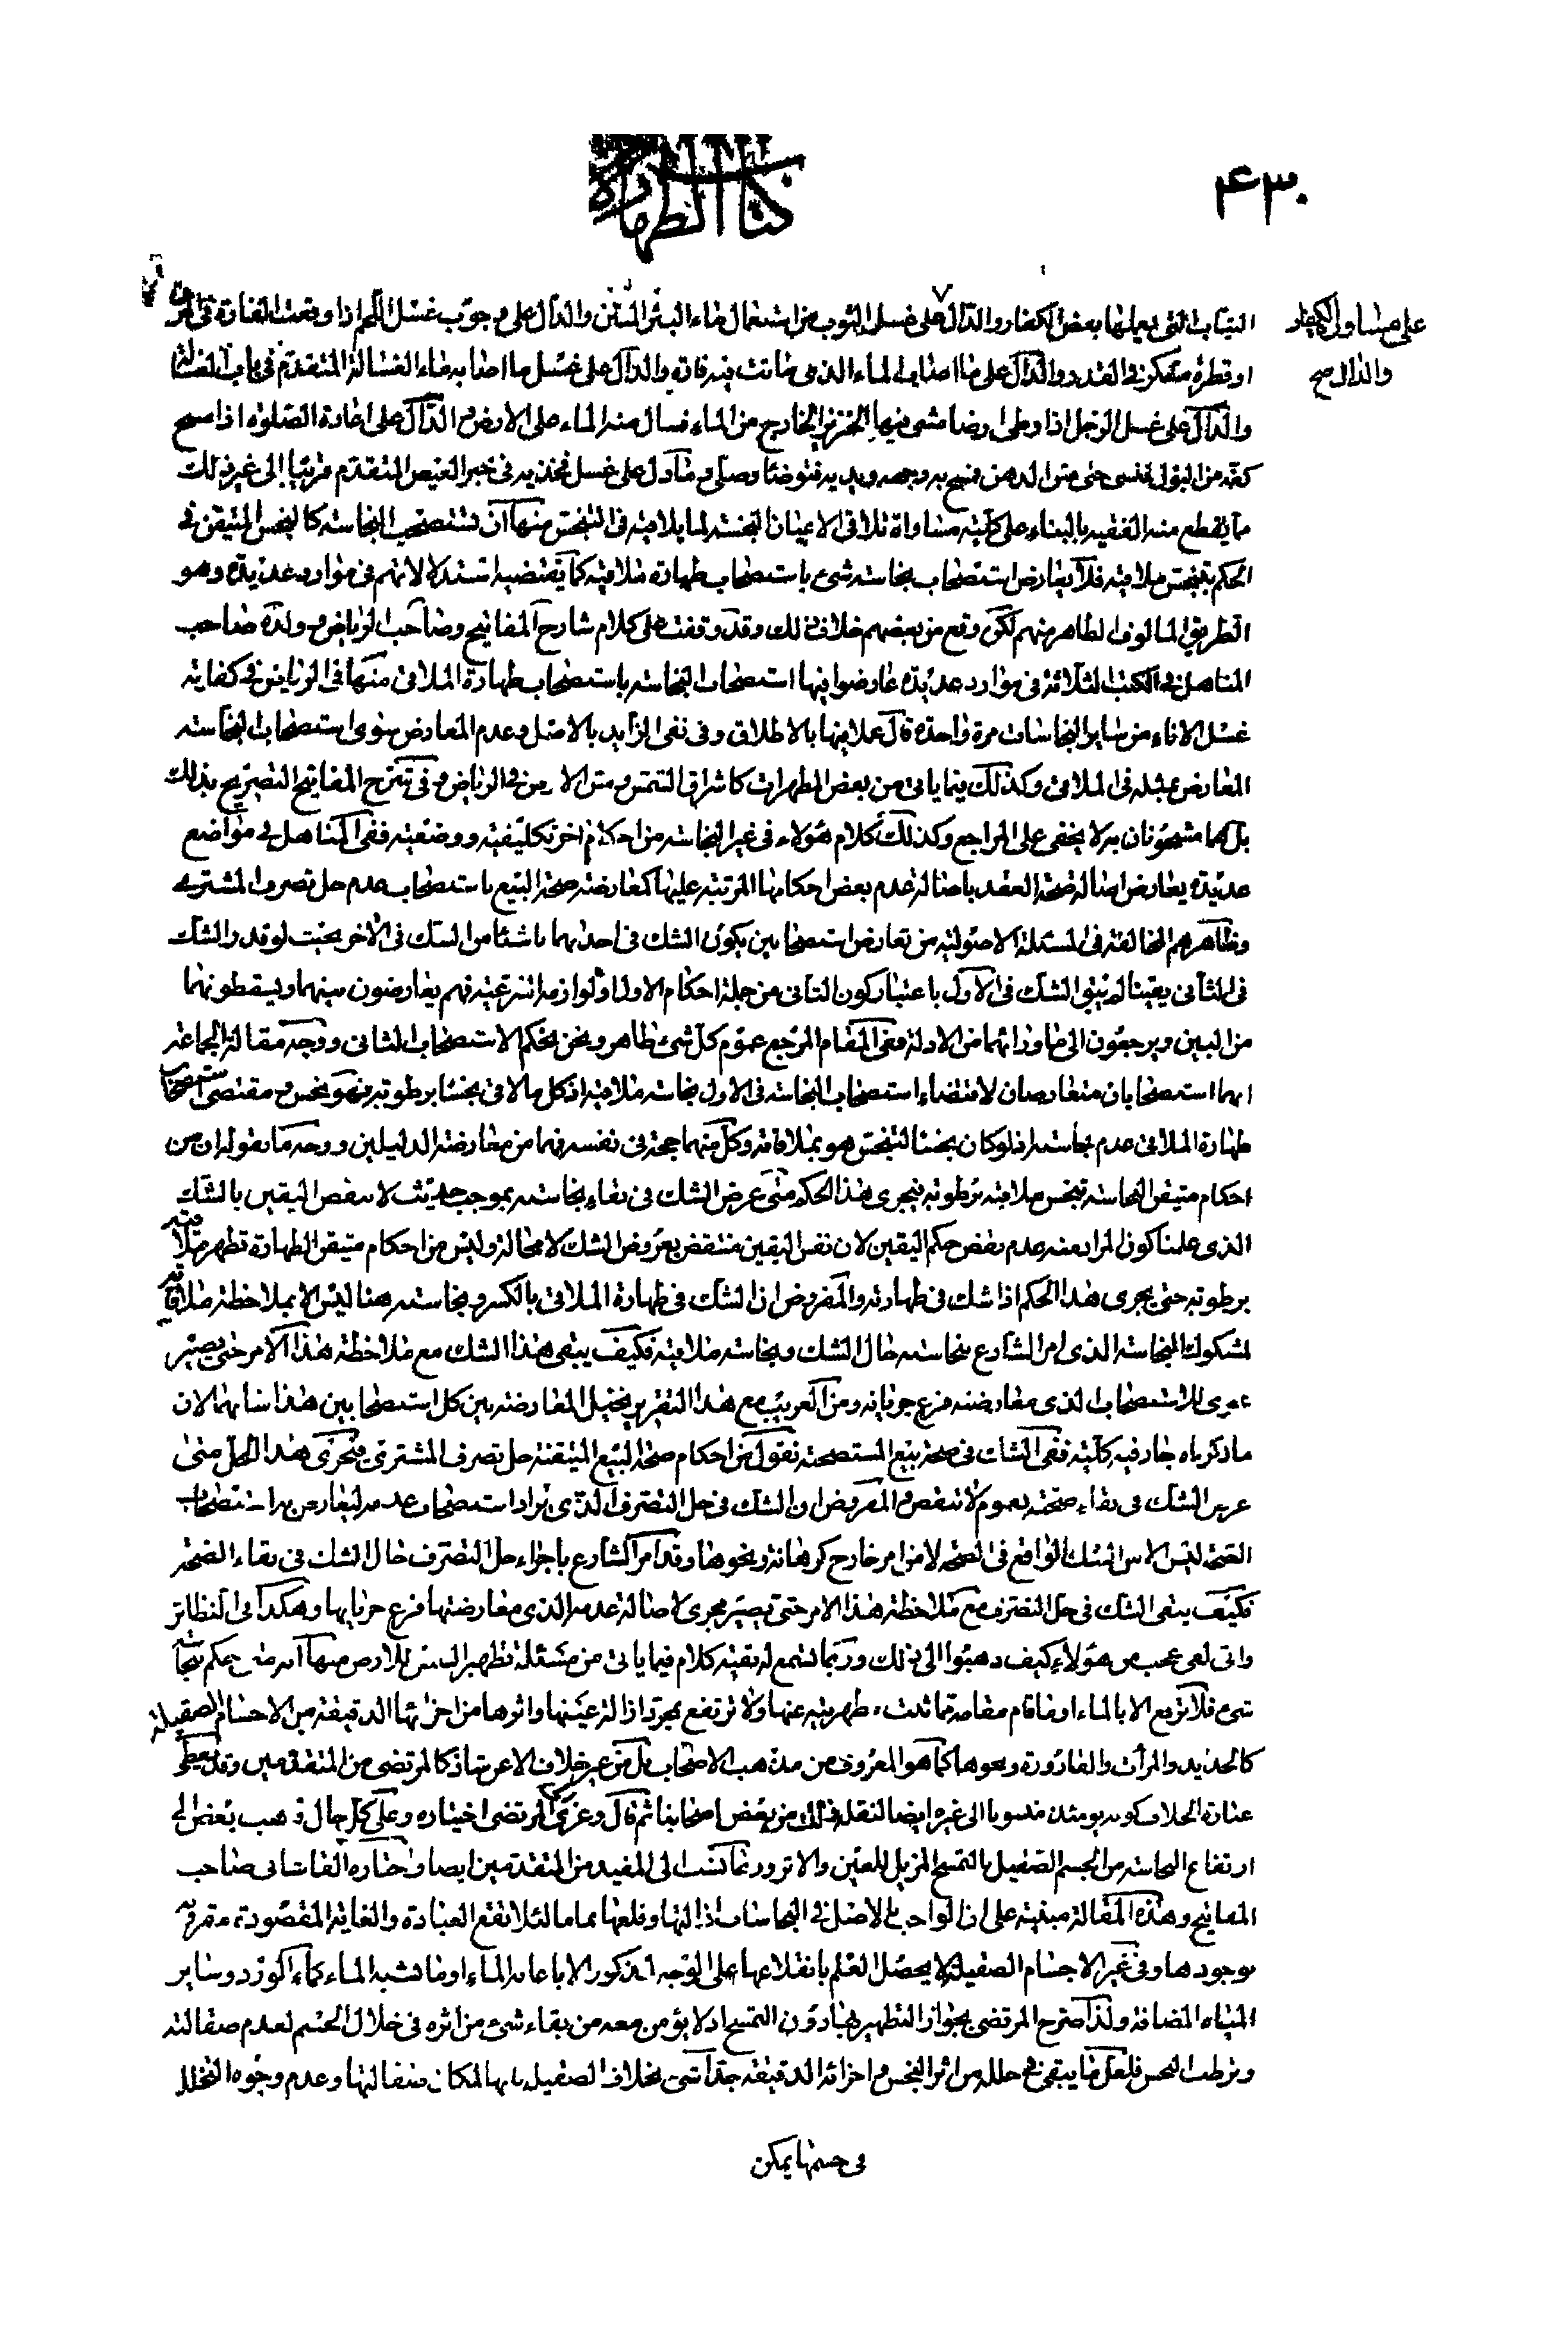 ۴۳۰
كتاب الطهارة
الثياب التى يعملها بعض الكفار والدال على غسل الثوب من استعمال ماء البئر المنتن والدال على وجوب غسل اللحم اذا وقعت الفارة فى المرق
على مساور الكفار
والدال صح
او قطرة مسكر فى القدر والدال على ما اصابه الماء الذى ماتت فيه فارة والدال على غسل ما اصابه ماء الغسالة المتقدم فى باب الغسالة
والدال على غسل الرجل اذا وطى ارضا مشى فيها الخنزير الخارج من الماء فسال منه الماء على الارض والدال على اعادة الصلوة اذا مسح
كفه من البول فنسى حتى مس الدهن فمسح به وجهه ويديه فتوضا وصلى وما دل على غسل فخذيه فى خبر العيص المتقدم قريبا الى غير ذلك
مما يقطع منه الفقيه بالبناء على كلية مساواة تلاقى الاعيان النجسة لما يلاقيه فى التنجس منها ان مستصحب النجاسة كالنجس المتيقن فى
الحكم بتنجس ملاقيه فلا يعارض استصحاب نجاسة شىء باستصحاب طهارة ملاقيه كما يقتضيه استدلالاتهم فى موارد عديدة وهو
الطريق المالوف الظاهر منهم لكن وقع من بعضهم خلاف ذلك وقد وقفت على كلام شارح المفاتيح وصاحب الرياض وولده صاحب
المناهل فى الكتب الثلاثة فى موارد عديدة عارضوا فيها استصحاب النجاسة باستصحاب طهارة الملاقى منها فى الرياض فى كفاية
غسل الاناء من سائر النجاسات مرة واحدة قال عملا فيها بالاطلاق وفى نفى الزايد بالاصل وعدم المعارض سوى استصحاب النجاسة
المعارض بمثله فى الملاقى وكذلك فيما ياتى من بعض المطهرات كاشراق الشمس ومس الارض فى الرياض وفى شرح المفاتيح التصريح بذلك
بل هما مشحونان به لا يخفى على المراجع وكذلك كلام هؤلاء فى غير النجاسة من احكام اخر تكليفية ووضعية ففى المناهل فى مواضع
عديدة يعارض اصالة صحة العقد باصالة عدم بعض احكامها المرتبة عليها كمعارضة صحة البيع باستصحاب عدم حل تصرف المشترى
وظاهرهم المخالفة فى المسئلة الاصولية من تعارض استصحابين يكون الشك فى احدهما ناشئا من الشك فى الاخر بحيث لو قدر الشك
فى الثانى يقينا لم يبق الشك فى الاول باعتبار كون الثانى من جملة احكام الاول او لوازمه الشرعية فهم يعارضون بينهما ويسقطونهما
من البين ويرجعون الى ما ورائهما من الادلة ففى المقام المرجع عموم كل شىء طاهر ونحن نحكم الاستصحاب الثانى ووجه مقالة الجماعة
انهما استصحابان متعارضان لاقتضاء استصحاب النجاسة فى الاول نجاسة ملاقيه اذ كل ما لاقى نجسا برطوبة فهو نجس ومقتضى استصحاب
طهارة الملاقى عدم نجاسته اذ لو كان نجسا لتنجس هو بملاقاته وكل منهما حجة فى نفسه فهما من معارضة الدليلين ووجه ما نقوله ان من
احكام متيقن النجاسة تنجس ملاقيه برطوبة فيجرى هذا الحكم متى عرض الشك فى بقاء نجاسته بموجب حديث لا ينقض اليقين بالشك
الذى علمنا كون المراد منه عدم نقض حكم اليقين لان نفس اليقين منتقض بعروض الشك لا محالة وليس من احكام متيقن الطهارة تطهر ملاقيه
برطوبة حتى يجرى هذا الحكم اذا شك فى طهارته والمفروض ان الشك فى طهارة الملاقى بالكسر ونجاسته هنا ليس الا بملاحظة ملاقاته
لمشكوك النجاسة الذى امر الشارع بنجاسته حال الشك ونجاسة ملاقيه فكيف يبقى هذا الشك مع ملاحظة هذا الامر حتى يصير
مجرى للاستصحاب الذى معارضته فرع جريانه ومن الغريب مع هذا التقرير تخيل المعارضة بين كل استصحابين هذا شانهما لان
ما ذكرناه جار فيه كلية ففى الشك فى صحة بيع المستصحبة نقول من احكام صحة البيع المتيقنة حل تصرف المشترى فيجرى هذا الحل متى
عرض الشك فى بقاء صحته بعموم لا تنقض والمفروض ان الشك فى حل التصرف الذى يراد استصحاب عدمه ليعارض به استصحاب
الصحة ليس الا من الشك الواقع فى الصحة لا من امر خارج كرهانة ونحوها وقد امر الشارع باجراء حل التصرف حال الشك فى بقاء الصحة
فكيف يبقى الشك فى حل التصرف مع ملاحظة هذا الامر حتى يصير مجرى لاصالة عدمه الذى معارضتها فرع جريانها وهكذا فى النظائر
وانى لفى عجب من هؤلاء كيف ذهبوا الى ذلك وربما تسمع له بقية كلام فيما ياتى من مسئلة تطهير الشمس للارض منها انه متى حكم بنجاسة
شىء فلا ترتفع الا بالماء او ما قام مقامه مما ثبت مطهريته عنها ولا ترتفع بمجرد ازالة عينها واثرها من اجزائها الدقيقة من الاجسام الصقيلة
كالحديد والمرات والقارورة ونحوها كما هو المعروف من مذهب الاصحاب بل من غير خلاف الا عن شاذ كالمرتضى من المتقدمين وقد يعطى
عبارة الخلاف كونه يومئذ منسوبا الى غيره ايضا لنقله ذلك من بعض اصحابنا ثم قال وعزى الى المرتضى اختياره وعلى كل حال ذهب بعض الى
ارتفاع النجاسة من الجسم الصقيل بالتمسح المزيل للعين والاثر وربما نسب الى المفيد من المتقدمين ايضا واختاره القاشانى صاحب
المفاتيح وهذه المقالة مبنية على ان الواجب بالاصل فى النجاسات ازالتها وقلعها تماما لئلا تقع العبادة والغاية المقصودة مقرونة
بوجودها وفى غير الاجسام الصقيلة لا يحصل العلم بانقلاعها على الوجه المذكور الا باعانة الماء او ما اشبه الماء كماء الورد وساير
المياه المضافة ولذا صرح المرتضى بجواز التطهير بها دون التمسح اذ لا يؤمن معه من بقاء شىء من اثره فى خلال الجسم لعدم صقالته
وترطب النجس فلعل ما يبقى فى خلله من اثر النجس واجزائه الدقيقة جدا شىء بخلاف الصقيلة فانها لمكان صقالتها وعدم وجوه التخلل
فى جسمها يمكن